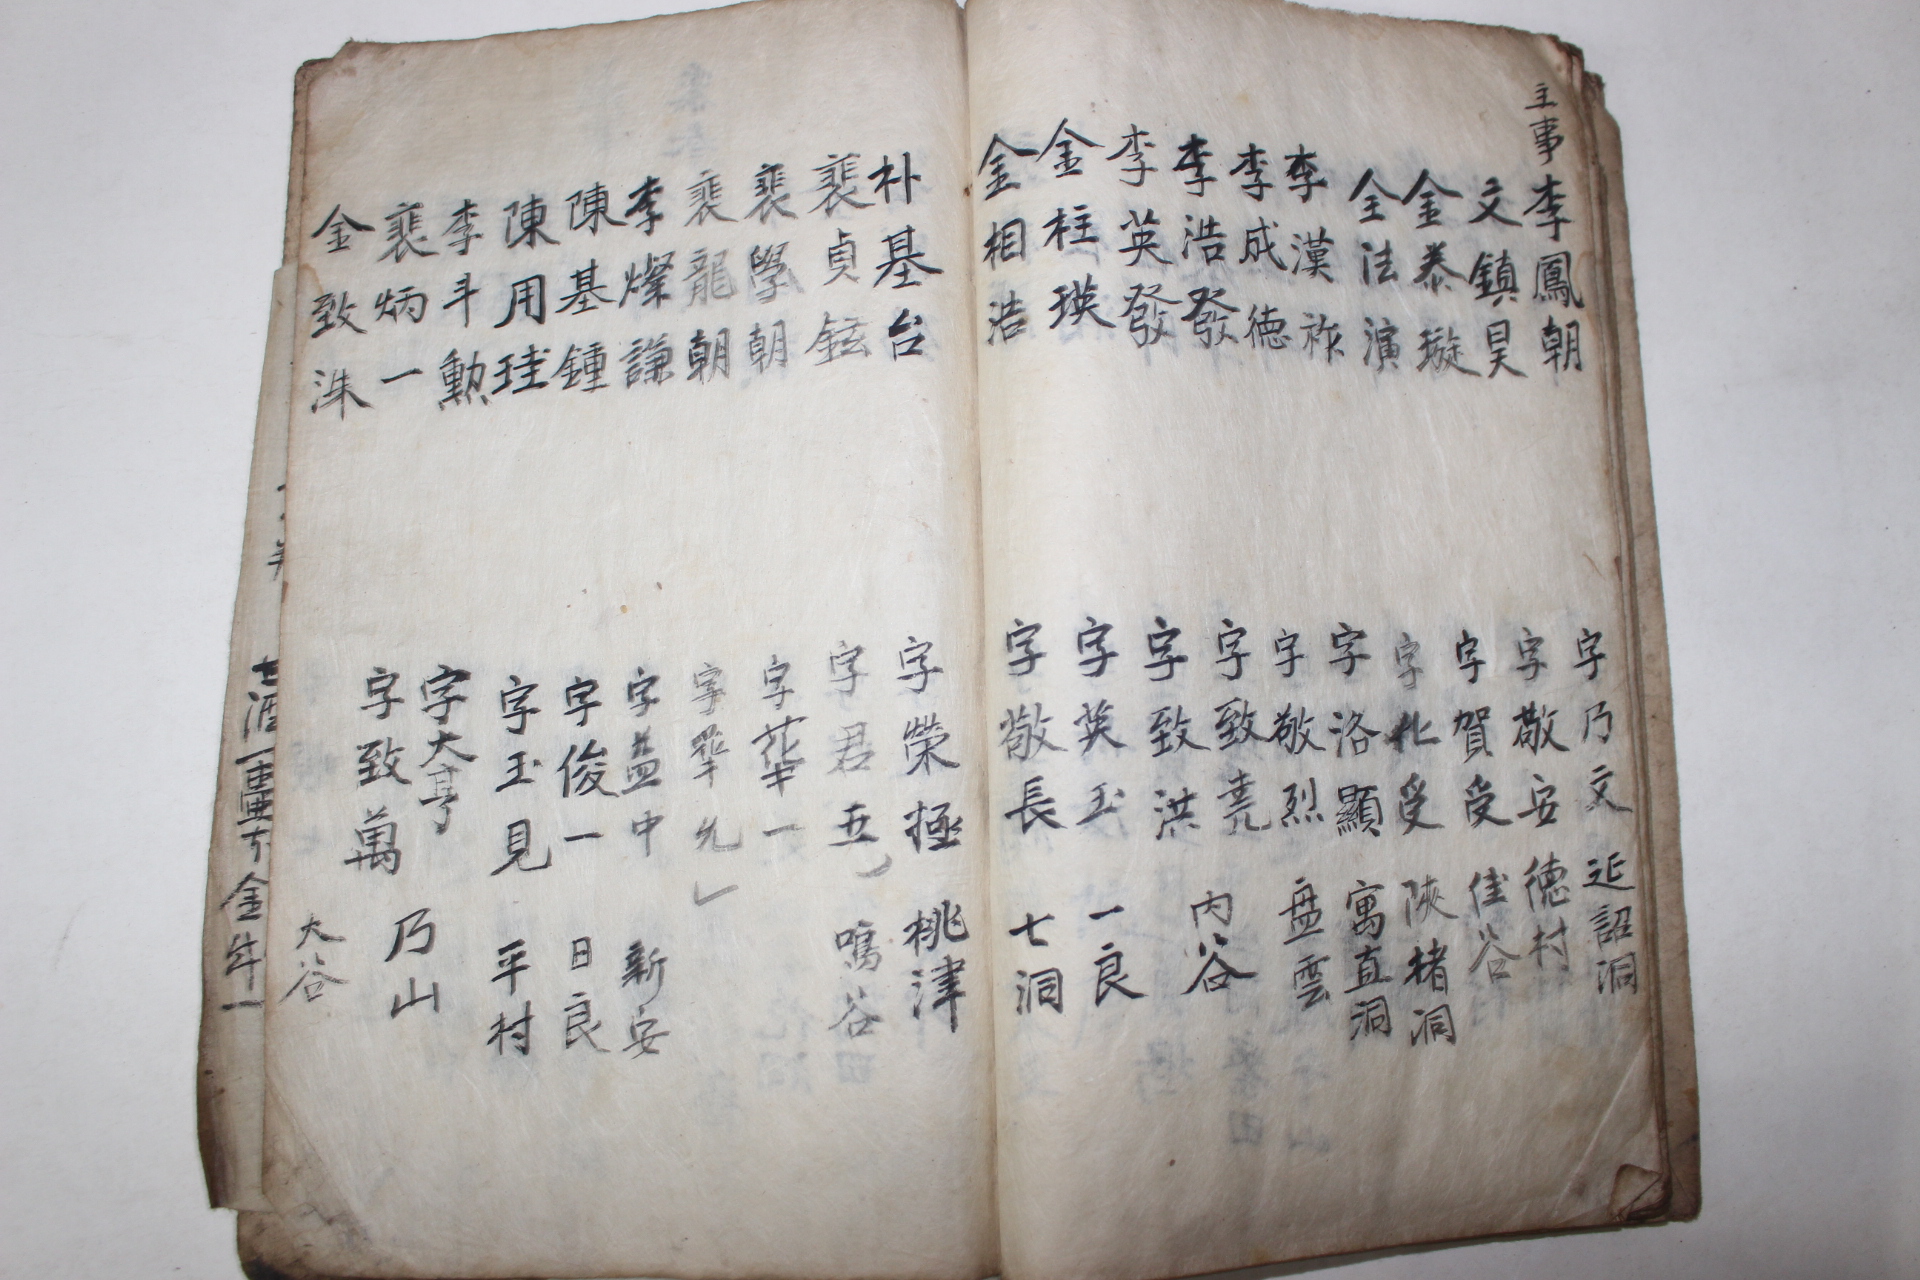 主事 李鳳朝 字乃文 近詔洞
文鎮昊 字敬安 德村
金泰璇 字賀受 佳谷
全法演 字化受 陝楮洞
李漢祚 字洛顯 寓直洞
李成德 字敬烈 盘雲
李浩發 字致堯 内谷
李英發 字致洪
金柱瑛 字英玉 一良
金相浩 字敬長 七洞
朴基台 字榮極 桃津
裴貞鉉 字君五 鳴谷
裴學朝 字華一
裴龍朝 字允
李燦謙 字益中 新安
陳基鍾 字俊一 日良
陳用珪 字玉見 平村
李斗勳 字大亨
裴炳一 字致萬 乃山
金致洙 大谷
七酒一壷下金